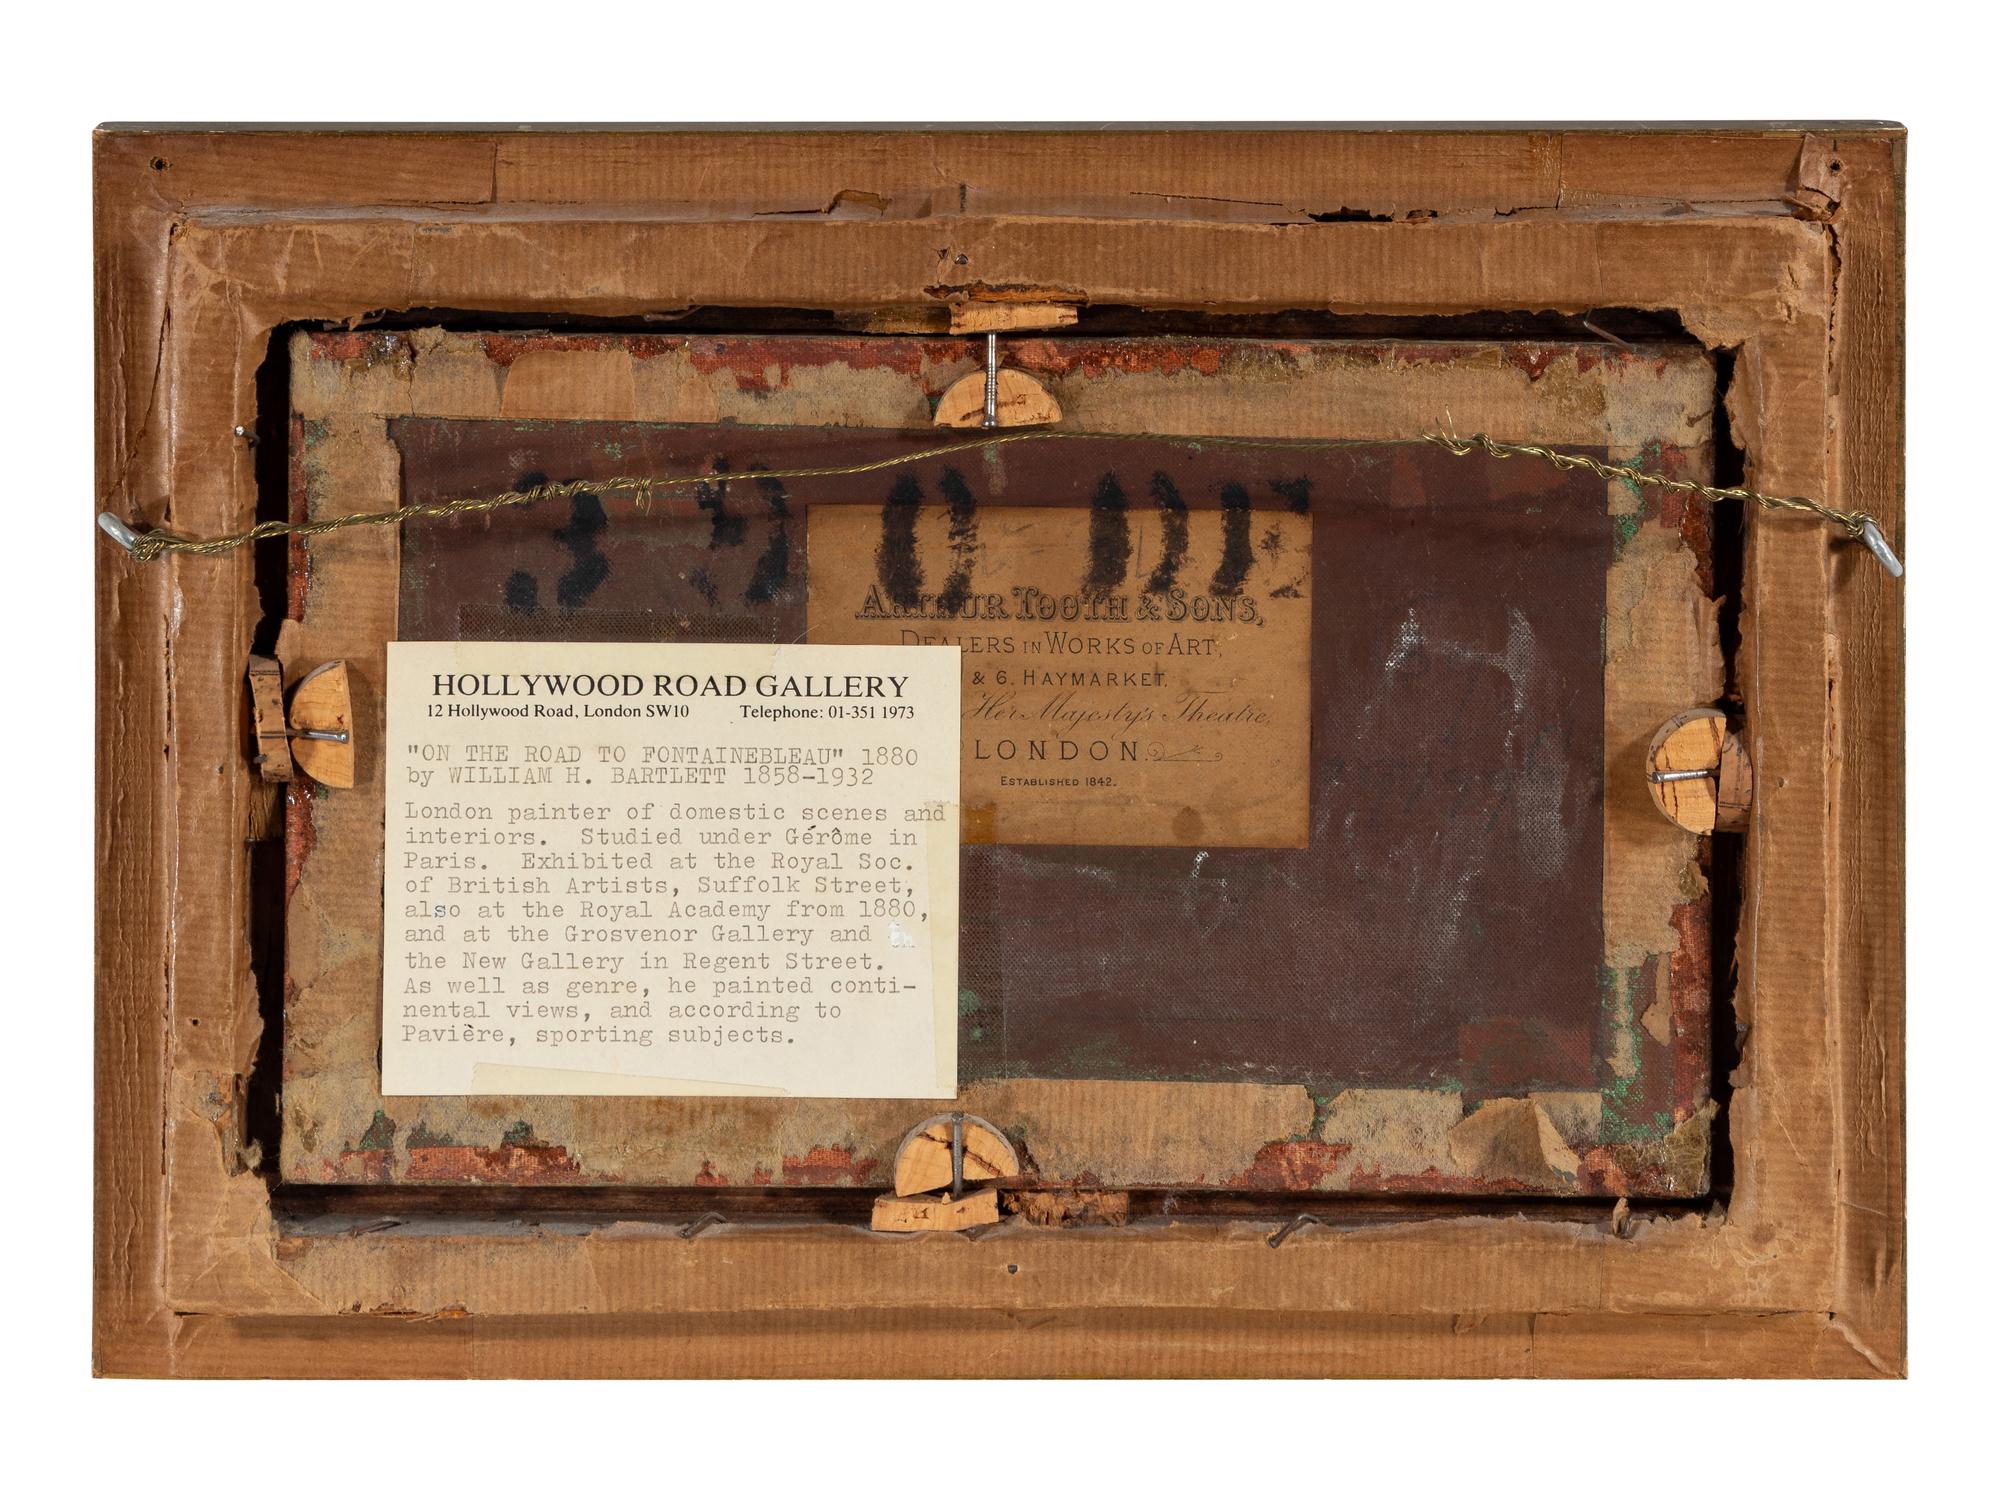 ARTHUR TOOTH & SONS,
DEALERS IN WORKS OF ART,
& 6. HAYMARKET,
Her Majesty's Theatre,
LONDON.
ESTABLISHED 1842.
HOLLYWOOD ROAD GALLERY
12 Hollywood Road, London SW10 Telephone: 01-351 1973
"ON THE ROAD TO FONTAINEBLEAU" 1880
by WILLIAM H. BARTLETT 1858-1932
London painter of domestic scenes and
interiors. Studied under Gérôme in
Paris. Exhibited at the Royal Soc.
of British Artists, Suffolk Street,
also at the Royal Academy from 1880,
and at the Grosvenor Gallery and
the New Gallery in Regent Street.
As well as genre, he painted conti-
nental views, and according to
Pavière, sporting subjects.